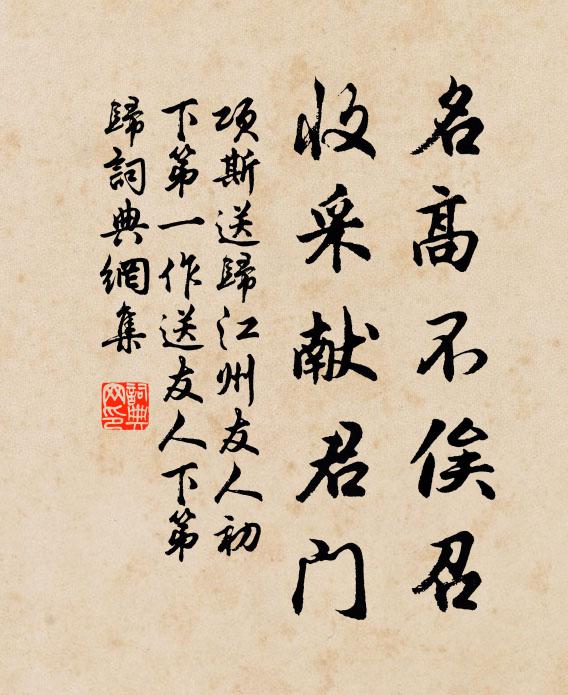 名高不俟召
收采献君门
项斯送歸江州友人初
下第一作送友人下第
歸詞典網集
詞典网印